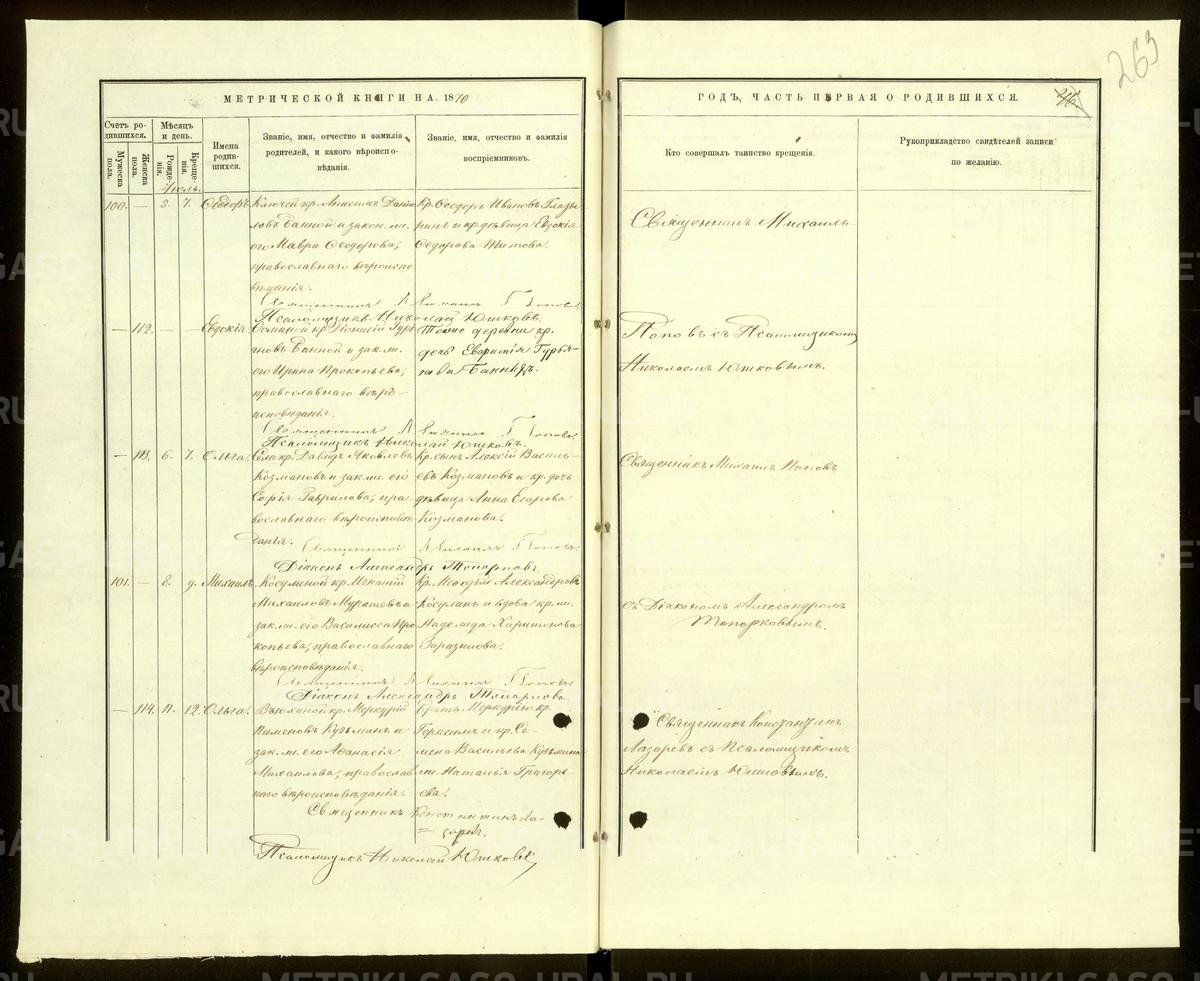 263
МЕТРИЧЕСКОЙ КНИГИ НА 1870
ГОДЪ, ЧАСТЬ ПЕРВАЯ О РОДИВШИХСЯ.
46.
Счетъ родившихся.
Мужеска пола.
Женска пола.
Мѣсяцъ и день.
Рожденія.
Крещенія.
Имена родившихся.
Званіе, имя, отчество и фамилія родителей, и какого вѣроисповѣданія.
Званіе, имя, отчество и фамилія воспріемниковъ.
Кто совершалъ таинство крещенія.
Рукоприкладство свидѣтелей записи по желанію.
Іюль.
100. — 3. 7. Ѳеодоръ
кр. Данін
ловъ Банной и закон. же.
его Мавра Ѳеодорова,
православнаго вѣроиспо
вѣданія.
Кр. Ѳеодоръ Ивановъ Глазы
ринъ и кр. дѣвица Евдокія
Ѳедорова Титова.
Священникъ Михаилъ
Священникъ Михаилъ Поповъ
Псаломщикъ Николай Юшковъ.
— 112. — — Евдокія
кр. Діонисій Гурь
яновъ Банной и зак. же.
его Ирина Прокопьева,
православнаго вѣро-
исповѣданія.
Тоѣже деревни кр.
дочь Гурья-
нова
Поповъ съ Псаломщикомъ
Николаемъ Юшковымъ.
Священникъ Михаилъ Поповъ
Псаломщикъ Николай Юшковъ.
— 113. 6. 7. Ольга.
Села кр. Давидъ Яковлевъ
Козмановъ и зак. же. его
Софія Гаврилова, пра-
вославнаго вѣроисповѣ
данія.
Кр. сынъ Алексій Василь-
евъ Козмановъ и кр. дочь
дѣвица Анна Егорова
Козманова.
Священникъ Михаилъ Поповъ
Священникъ Михаилъ Поповъ
Діаконъ Александръ Топорковъ.
101. — 8. 9. Михаилъ
кр.
Михаиловъ Мурашевъ а
зак. же. его Василисса Про
копьева, православнаго
вѣроисповѣданія.
Кр. Меѳодій Александровъ
Косулинъ и вдова кр. же.
Надежда Харитонова
съ Діакономъ Александромъ
Топорковымъ.
Священникъ Михаилъ Поповъ
Діаконъ Александръ Топорковъ
— 114. 11. 12. Ольга.
кр. Меркурій
Пименовъ Кузьминъ и
зак. же. его Аѳанасія
Михаилова, православ
наго вѣроисповѣданія.
братъ Меркурію кр.
Герасимъ и кр. Се-
мена Васильева Кузьмина
же. Наталья Григорь-
ева.
Священникъ Константинъ
Лазаревъ съ Псаломщикомъ
Николаемъ Юшковымъ.
Священникъ Константинъ Ла-
заревъ.
Псаломщикъ Николай Юшковъ
METRIKI.GASO-URAL.RU